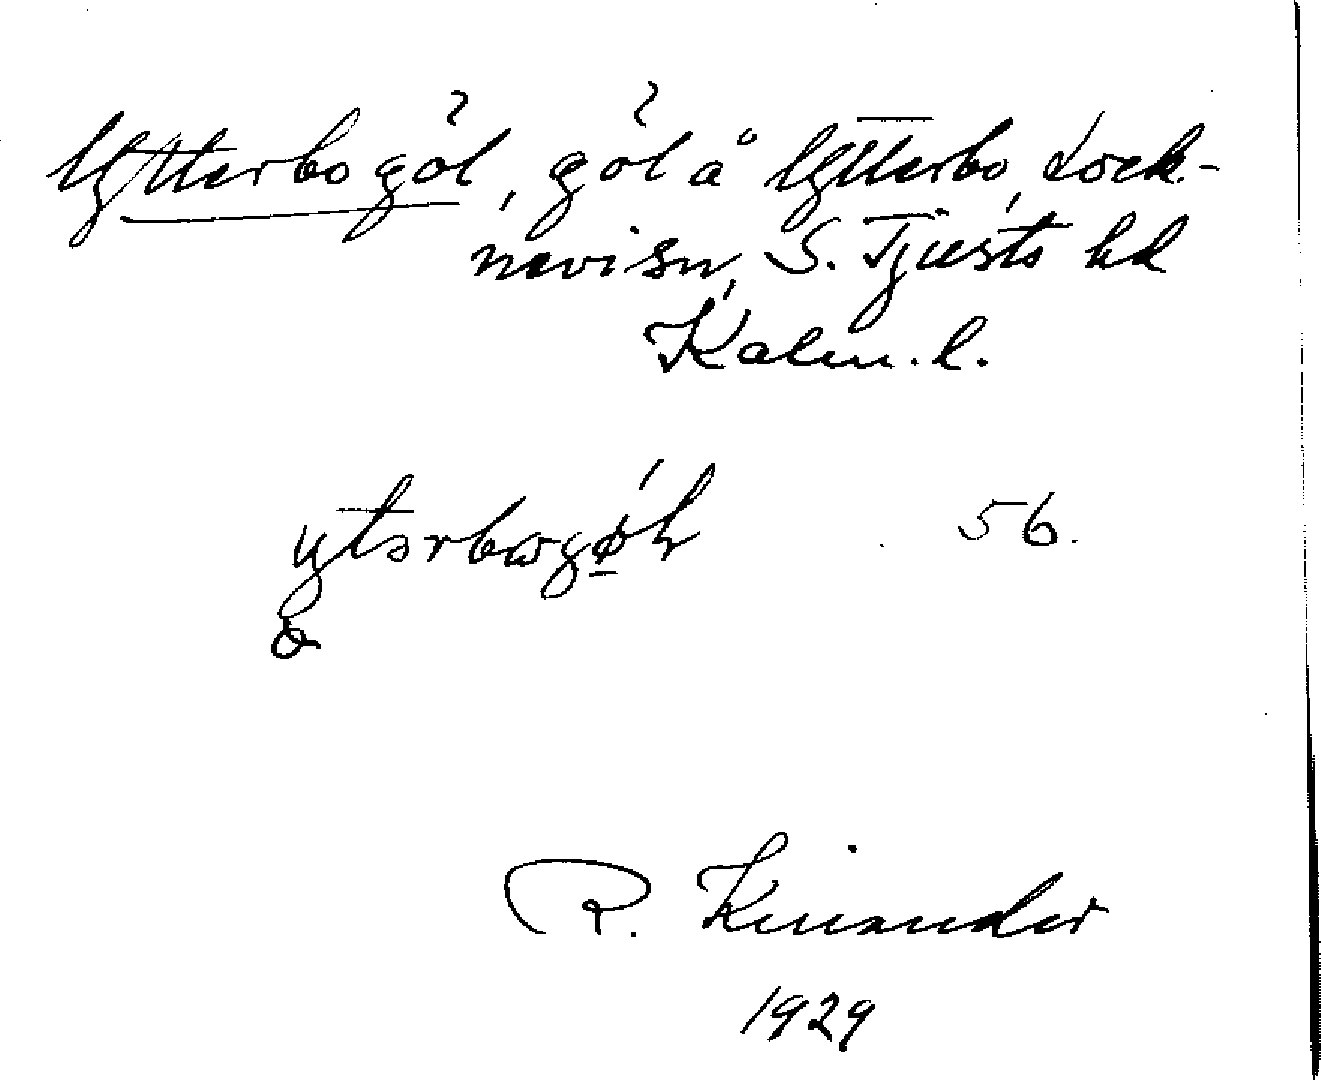 Ytterbogöl, göl å Ytterbo, Lock-
nevi sn, S. Tjusts hd
Kalm. l.
56.
R. Kinander
1929